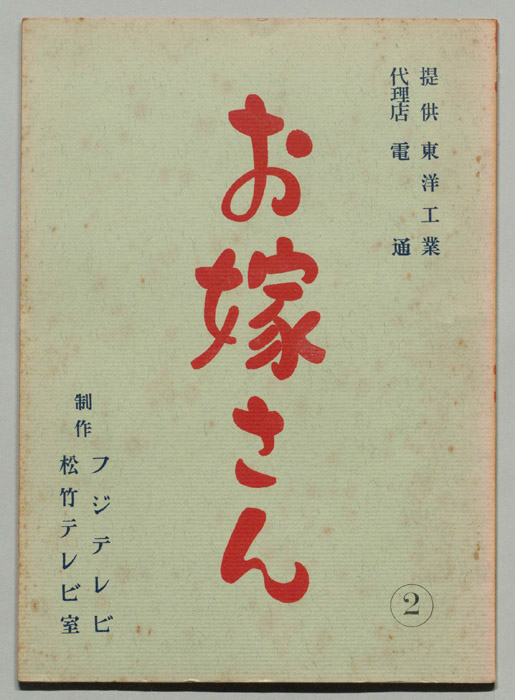 提供 東洋工業
代理店 電通
お嫁さん
制作 フジテレビ
松竹テレビ室
2